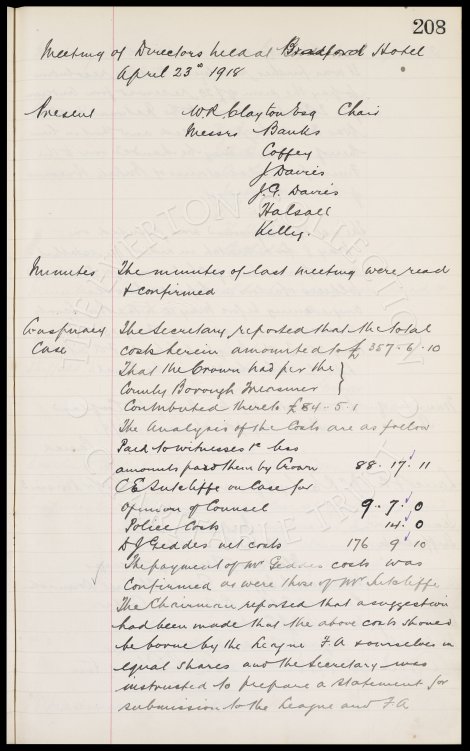 208
Meeting of Directors held at Bradford Hotel
April 23rd 1918
Present W R Clayton Esq Chair
Messrs Banks
Coffey
J Davies
J. G. Davies
Halsall
Kelly.
Minutes The minutes of last meeting were read
& confirmed
Conspiracy The Secretary reported that the total
Case costs herein amounted to £ 357. 6. 10
That the Crown had per the
County Borough Treasurer
Contributed thereto £84. 5. 1
The Analysis of the Costs are as follow
Paid to witnesses less
amounts paid them by Crown 88. 17. 11
C E Sutcliffe on Case for
opinion of Counsel 9. 7. 0
Police Costs 14. 0
D J Geddes net costs 176 9 10
The payment of Mr Geddes costs was
Confirmed as were those of Mr Sutcliffe
The Chairman reported that a suggestion
had been made that the above costs should
be borne by the League F A & ourselves in
equal shares and the Secretary was
instructed to prepare a statement for
submission to the League and F A
THE EVERTON COLLECTION
CHARITABLE TRUST